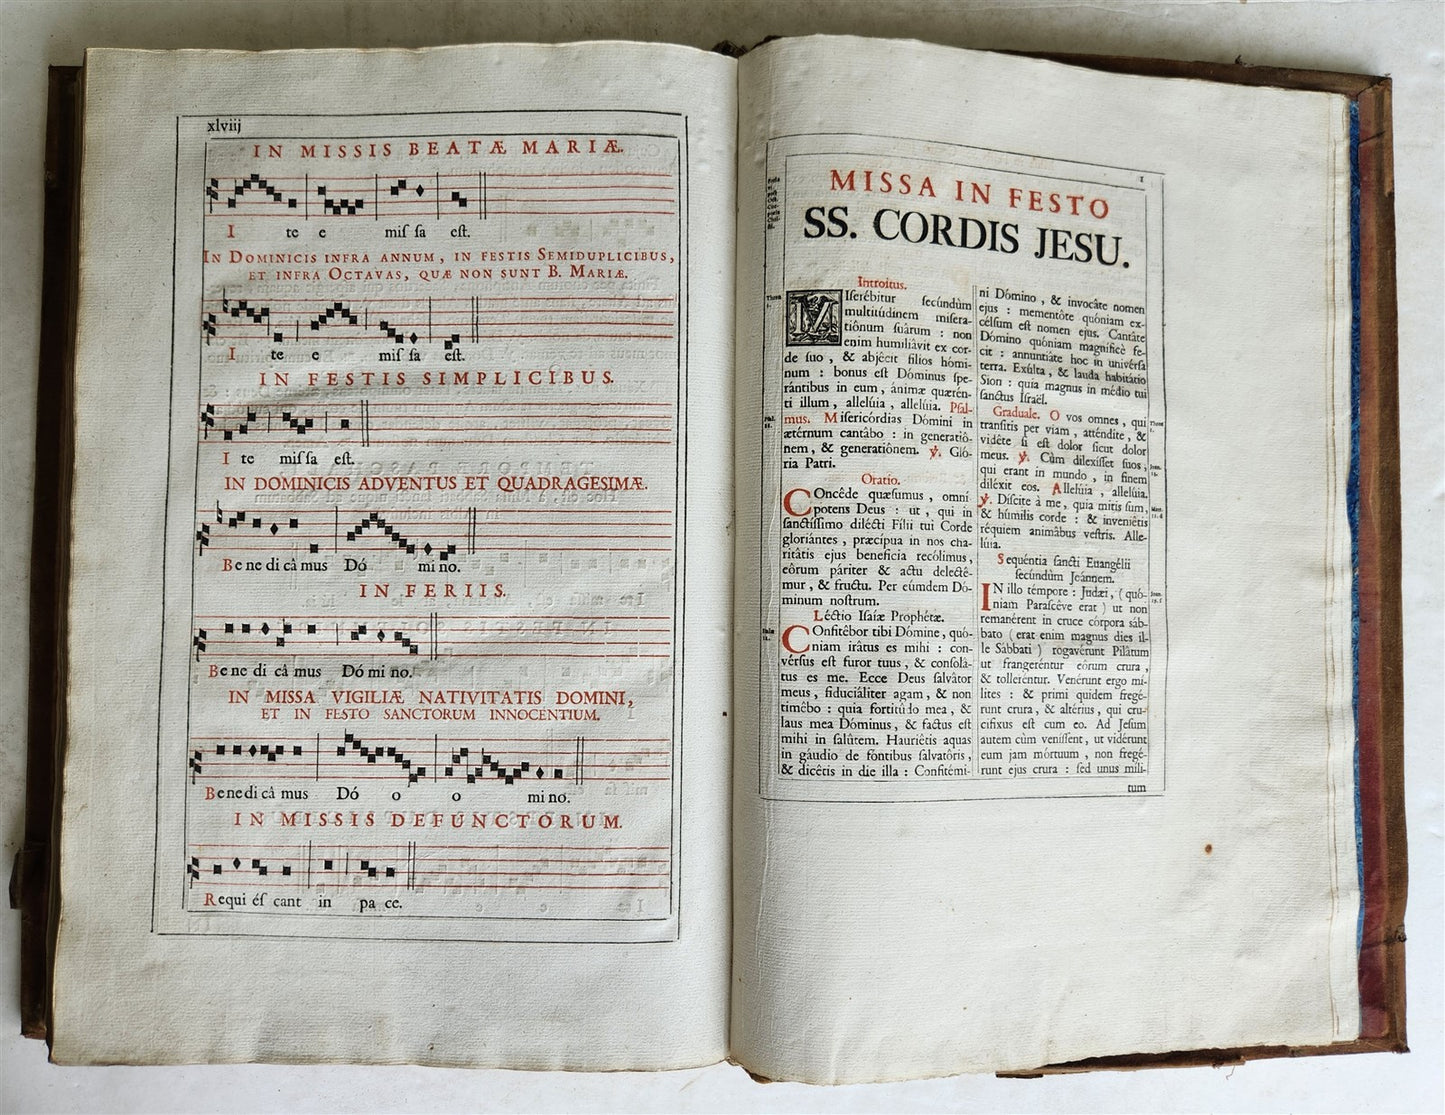 xlviij
IN MISSIS BEATÆ MARIÆ.
I te e miſ ſa eſt.
IN DOMINICIS INFRA ANNUM, IN FESTIS SEMIDUPLICIBUS,
ET INFRA OCTAVAS, QUÆ NON SUNT B. MARIÆ.
I te e miſ ſa eſt.
IN FESTIS SIMPLICIBUS.
I te miſ ſa eſt.
IN DOMINICIS ADVENTUS ET QUADRAGESIMÆ.
Be ne di câ mus Dó mi no.
IN FERIIS.
Be ne di câ mus Dó mi no.
IN MISSA VIGILIÆ NATIVITATIS DOMINI,
ET IN FESTO SANCTORUM INNOCENTIUM.
Be ne di câ mus Dó o o mi no.
IN MISSIS DEFUNCTORUM.
Requi éſ cant in pa ce.
1
MISSA IN FESTO
SS. CORDIS JESU.
Introitus.
MIſerébitur ſecúndùm
multitúdinem miſera-
tiônum ſuârum : non
enim humiliâvit ex cor-
de ſuo , & abjécit filios hómi-
num : bonus eſt Dóminus ſpe-
rántibus in eum , ánimæ quæren-
ti illum , allelúia , allelúia. Pſal-
mus. Miſericórdias Dómini in
ætérnum cantâbo : in generatiô-
nem , & generatiônem. ℣. Gló-
ria Patri.
Oratio.
COncêde quæſumus , omní
potens Deus : ut , qui in
ſanctíſſimo diléćti Fílii tui Corde
gloriántes , præcípua in nos cha-
ritâtis ejus beneficia recólimus,
eôrum páriter & actu delecté-
mur , & fructu. Per eúmdem Dó-
minum noſtrum.
Léctio Iſaíæ Prophétæ.
COnfitêbor tibi Dómine , quó-
niam irâtus es mihi : con-
vérſus eſt furor tuus , & conſolâ-
tus es me. Ecce Deus ſalvâtor
meus , fiduciáliter agam , & non
timêbo : quia fortitúdo mea , &
laus mea Dóminus , & factus eſt
mihi in ſalûtem. Hauriêtis aquas
in gáudio de fóntibus ſalvatôris ,
& dicêtis in die illa : Confitémi-
ni Dómino , & invocâte nomen
ejus : mementôte quóniam ex-
célſum eſt nomen ejus. Cantâte
Dómino quóniam magnificè fe-
cit : annuntiâte hoc in univérſa
terra. Exúlta , & lauda habitátio
Sion : quia magnus in médio tui
ſanctus Iſraël.
Graduale. O vos omnes , qui
tranſîtis per viam , atténdite , &
vidête ſi eſt dolor ſicut dolor
meus. ℣. Cùm dilexíſſet ſuos ,
qui erant in mundo , in finem
diléxit eos. Allelúia , allelúia.
℣. Díſcite à me , quia mitis ſum ,
& húmilis corde : & inveniêtis
réquiem animâbus veſtris. Alle-
lúia.
Sequéntia ſancti Euangélii
ſecúndùm Joánnem.
IN illo témpore : Judæi , ( quó-
niam Paraſcêve erat ) ut non
remanérent in cruce córpora ſáb-
bato ( erat enim magnus dies il-
le Sábbati ) rogavérunt Pilâtum
ut frangeréntur eôrum crura ,
& tolleréntur. Venérunt ergo mí-
lites : & primi quidem fregé-
runt crura , & altérius , qui cru-
cifíxus eſt cum eo. Ad Jeſum
autem cùm veníſſent , ut vidérunt
eum jam mórtuum , non fregé-
runt ejus crura : ſed unus míli-
tum